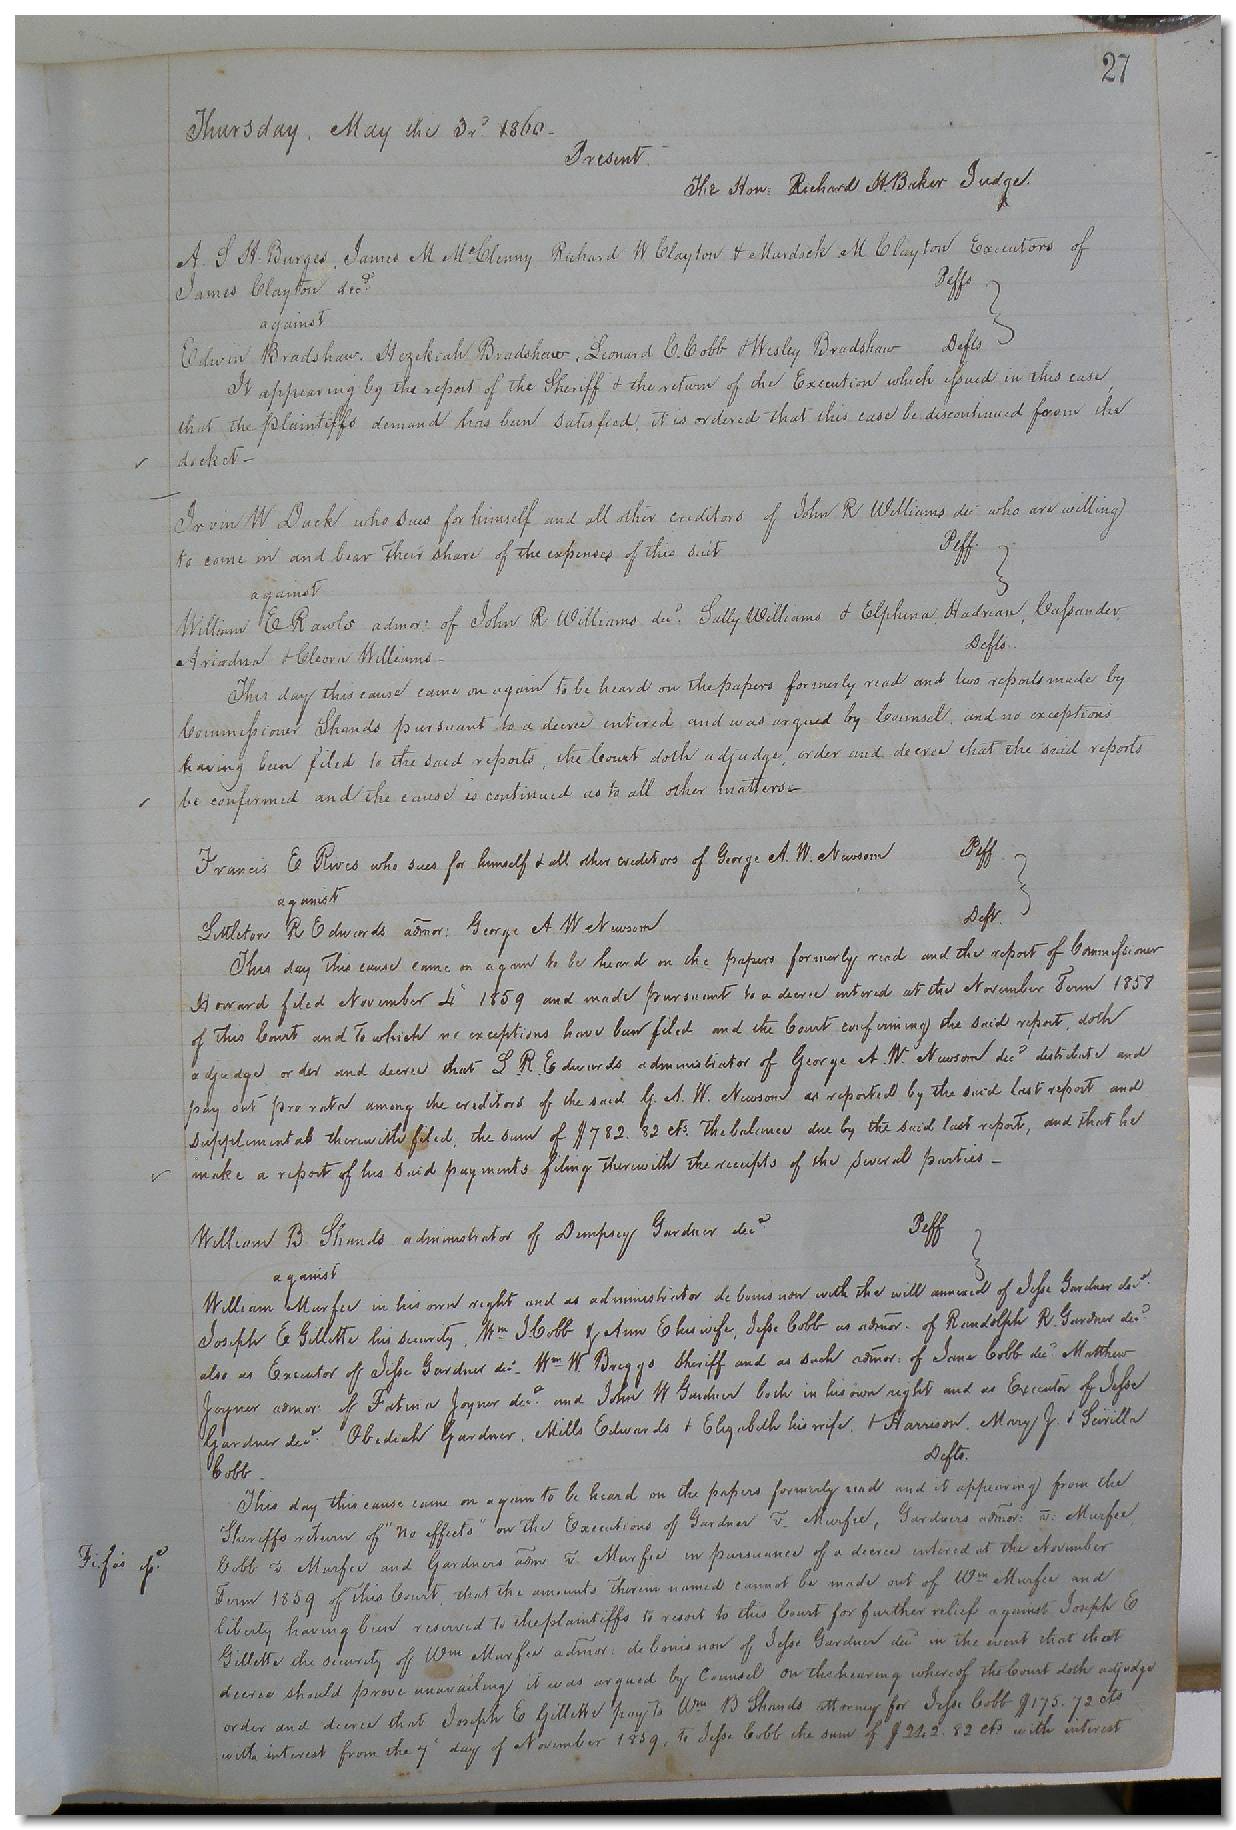 27
Thursday. May the 3rd 1860-
Present.
The Hon: Richard H. Baker Judge.
A. S. H. Burges, James M McClenny Richard W Clayton & Murdock M Clayton Executors of
James Clayton decd Peffs
against
Edwin Bradshaw, Hezekiah Bradshaw, Leonard C. Cobb & Wesley Bradshaw Defts
It appearing by the report of the Sheriff & the return of the Execution which issued in this case
that the plaintiffs demand has been satisfied, it is ordered that this case be discontinued from the
docket-
Irvin W Duck who sues for himself and all other creditors of John R Williams de who are willing
to come in and bear their share of the expenses of this suit Peff
against
William E Rawls admor: of John R Williams decd Sally Williams & Elphina, Hadrian, Cassander,
Ariadna & Cleora Williams- Defts.
This day this cause came on again to be heard on the papers formerly read and two reports made by
Commissioner Shands pursuant to a decree entered and was argued by Counsel, and no exceptions
having been filed to the said reports, the Court doth adjudge, order and decree that the said reports
be confirmed and the cause is continued as to all other matters-
Francis E Rives who sues for himself & all other creditors of George A. W. Newsom Peff
against
Littleton R Edwards admor: George A W Newsom Deft.
This day this cause came on again to be heard on the papers formerly read and the report of Commissioner
Howard filed November 4 1859 and made pursuant to a decree entered at the November Term 1858
of this Court and to which no exceptions have been filed and the Court confirming the said report, doth
adjudge order and decree that L R. Edwards administrator of George A. W. Newsom decd distribute and
pay out pro rata among the creditors of the said G. A. W. Newsom as reported by the said last report and
supplemental therewith filed, the sum of $782. 82 cts. the balance due by the said last report, and that he
make a report of his said payments filing therewith the receipts of the several parties-
William B Shands administrator of Dempsey Gardner decd Peff
against
William Murfee in his own right and as administrator de bonis non with the will annexed of Jesse Gardner decd.
Joseph E Gillette his security, Wm J Cobb & Ann E his wife, Jesse Cobb as admor. of Randolph R. Gardner decd
also as Executor of Jesse Gardner decd Wm W Briggs Sheriff and as such admor: of Jane Cobb decd Matthew
Joyner admor of Fatima Joyner decd and John W Gardner both in his own right and as Executor of Jesse
Gardner decd. Obediah Gardner, Mills Edwards & Elizabeth his wife, & Harrison, Mary J. & Sivilla
Cobb. Defts.
This day this cause came on again to be heard on the papers formerly read and it appearing from the
Sheriffs return of "no effects" on the Executions of Gardner v. Murfee, Gardners admor: v. Murfee,
Cobb v Murfee and Gardners adm v. Murfee in pursuance of a decree entered at the November
Fi fas
Term 1859 of this Court, that the amounts therein named cannot be made out of Wm Murfee and
liberty having been reserved to the plaintiffs to resort to this Court for further relief against Joseph E
Gillette the security of Wm Murfee admor: de bonis non of Jesse Gardner decd in the event that that
decree should prove unavailing it was argued by Counsel On the hearing whereof the Court doth adjudge
order and decree that Joseph E Gillette pay to Wm B Shands attorney for Jesse Cobb $175. 72 cts
with interest from the 7 day of November 1859, to Jesse Cobb the sum of $242. 82 cts with interest